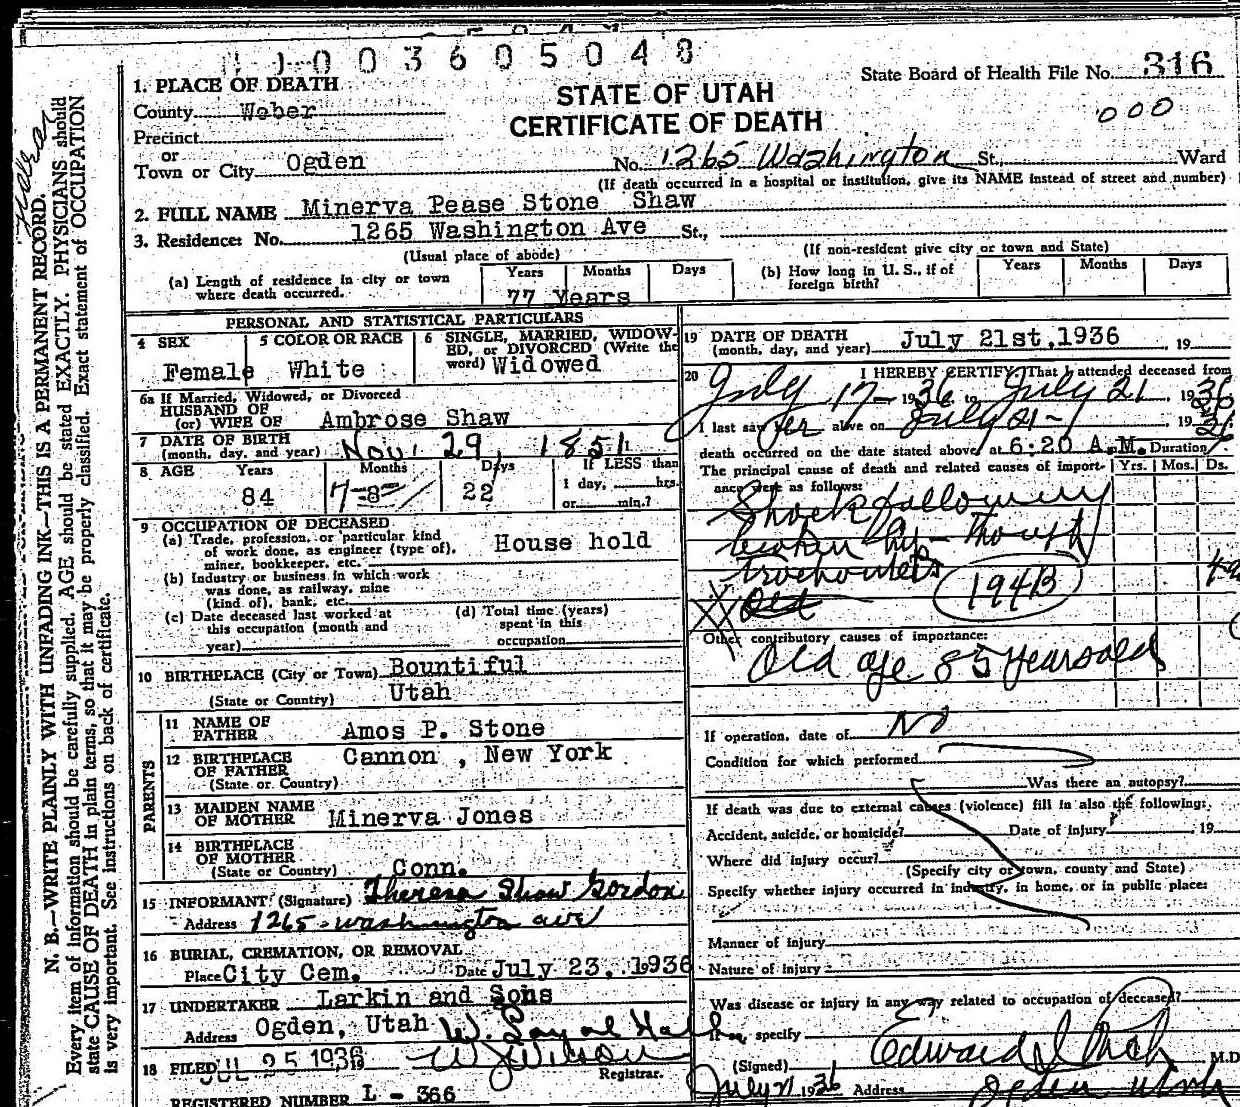 003605048
State Board of Health File No. 316
1. PLACE OF DEATH
STATE OF UTAH
CERTIFICATE OF DEATH
000
County Weber
Precinct
or
Town or City Ogden No. 1265 Washington St., Ward
(If death occurred in a hospital or institution, give its NAME instead of street and number)
2. FULL NAME Minerva Pease Stone Shaw
3. Residence: No. 1265 Washington Ave St.,
(Usual place of abode) (If non-resident give city or town and State)
(a) Length of residence in city or town where death occurred. Years Months Days
77 Years
(b) How long in U. S., if of foreign birth? Years Months Days
PERSONAL AND STATISTICAL PARTICULARS
4 SEX Female
5 COLOR OR RACE White
6 SINGLE, MARRIED, WIDOW-
ED, or DIVORCED (Write the
word) Widowed
6a If Married, Widowed, or Divorced
HUSBAND OF
(or) WIFE OF Ambrose Shaw
7 DATE OF BIRTH
(month, day, and year) Nov. 29, 1851
8 AGE Years Months Days If LESS than
84 7-8- 22 1 day, hrs.
or min.?
9 OCCUPATION OF DECEASED
(a) Trade, profession, or particular kind
of work done, as engineer (type of),
miner, bookkeeper, etc. House hold
(b) Industry or business in which work
was done, as railway, mine
(kind of), bank, etc.
(c) Date deceased last worked at
this occupation (month and
year)
(d) Total time (years)
spent in this
occupation
10 BIRTHPLACE (City or Town) Bountiful
(State or Country) Utah
PARENTS
11 NAME OF
FATHER Amos P. Stone
12 BIRTHPLACE
OF FATHER
(State or Country) Cannon , New York
13 MAIDEN NAME
OF MOTHER Minerva Jones
14 BIRTHPLACE
OF MOTHER
(State or Country) Conn.
15 INFORMANT (Signature) Theresa Shaw Gordon
Address 1265 - Washington ave
16 BURIAL, CREMATION, OR REMOVAL
Place City Cem. Date July 23, 1936
17 UNDERTAKER Larkin and Sons
Address Ogden, Utah
18 FILED JUL 25 1936 W J Wilson
Registrar.
REGISTERED NUMBER L - 366
19 DATE OF DEATH
(month, day, and year) July 21st, 1936 , 19
20 I HEREBY CERTIFY, That I attended deceased from
July 17 - 1936, to July 21, 1936
I last saw her alive on July 21 - , 1936
death occurred on the date stated above, at 6:20 A.M. Duration
The principal cause of death and related causes of import-
ance were as follows: Yrs. Mos. Ds.
Shock following
broken hip - Through
194B
Old
Other contributory causes of importance:
Old age 85 years old
If operation, date of No
Condition for which performed
Was there an autopsy?
If death was due to external causes (violence) fill in also the following:
Accident, suicide, or homicide? Date of Injury , 19
Where did injury occur?
(Specify city or town, county and State)
Specify whether injury occurred in industry, in home, or in public place:
Manner of Injury
Nature of Injury
Was disease or injury in any way related to occupation of deceased?
If so, specify
(Signed) Edward I. M.D
July 21 1936 Address Ogden Utah
N. B.—WRITE PLAINLY WITH UNFADING INK—THIS IS A PERMANENT RECORD.
Every item of information should be carefully supplied. AGE should be stated EXACTLY. PHYSICIANS should
state CAUSE OF DEATH in plain terms, so that it may be properly classified. Exact statement of OCCUPATION
is very important. See instructions on back of certificate.